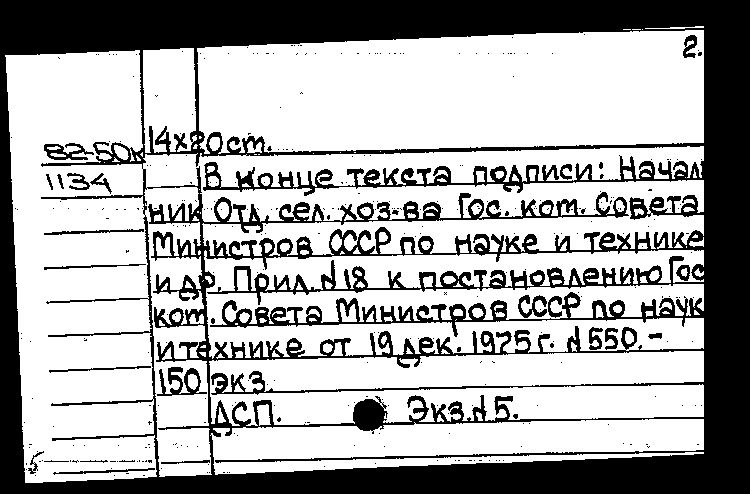 2.
14х20ст.
82-50к
1134
В конце текста подписи: Начал
ник Отд. сел. хоз-ва Гос. кот. Совета
Министров СССР по науке и технике
и др. Прил. N18 к постановлению Гос
кот. Совета Министров СССР по наук
и технике от 19 дек. 1975 г. N550.-
150 экз.
ДСП. Экз. N5.
5